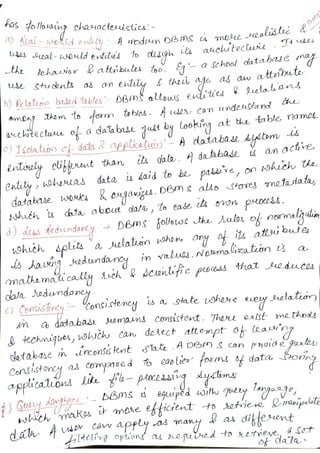 has following characteristics:-
a) Real-world entity:- A modern DBMS is more realistic &
uses real-world entities to design its architecture. It uses
the behavior & attributes too. Eg:- a school database may
use students as an entity & their age as an attribute.
b) Relation based tables:- DBMS allows entities & relations
among them to form tables. A user can understand the
architecture of a database just by looking at the table names.
c) Isolation of data & application:- A database system is
entirely different than its data. A database is an active
entity, whereas data is said to be passive, on which the
database works & organizes. DBMS also stores metadata,
which is data about data, to ease its own process.
d) Less Redundancy → DBMS follows the rules of normalization
which splits a relation when any of its attributes
is having redundancy in values. Normalization is a
mathematically rich & scientific process that reduces
data redundancy.
e) Consistency:- Consistency is a state where every relation
in a database remains consistent. There exist methods
& techniques, which can detect attempt of leaving
database in inconsistent state. A DBMS can provide greater
consistency as compared to earlier forms of data storing
applications like file-processing systems
f) Query language:- DBMS is equiped with query language,
which makes it more efficient to retrieve & manipulate
data. A user can apply as many & as different
filtering options as required to retrieve a set
of data.